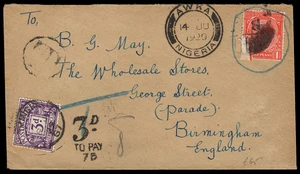 To,
B. G. May.
The Wholesale Stores,
George Street
(Parade)
Birmingham
England.
AWKA
NIGERIA
3D
TO PAY
75